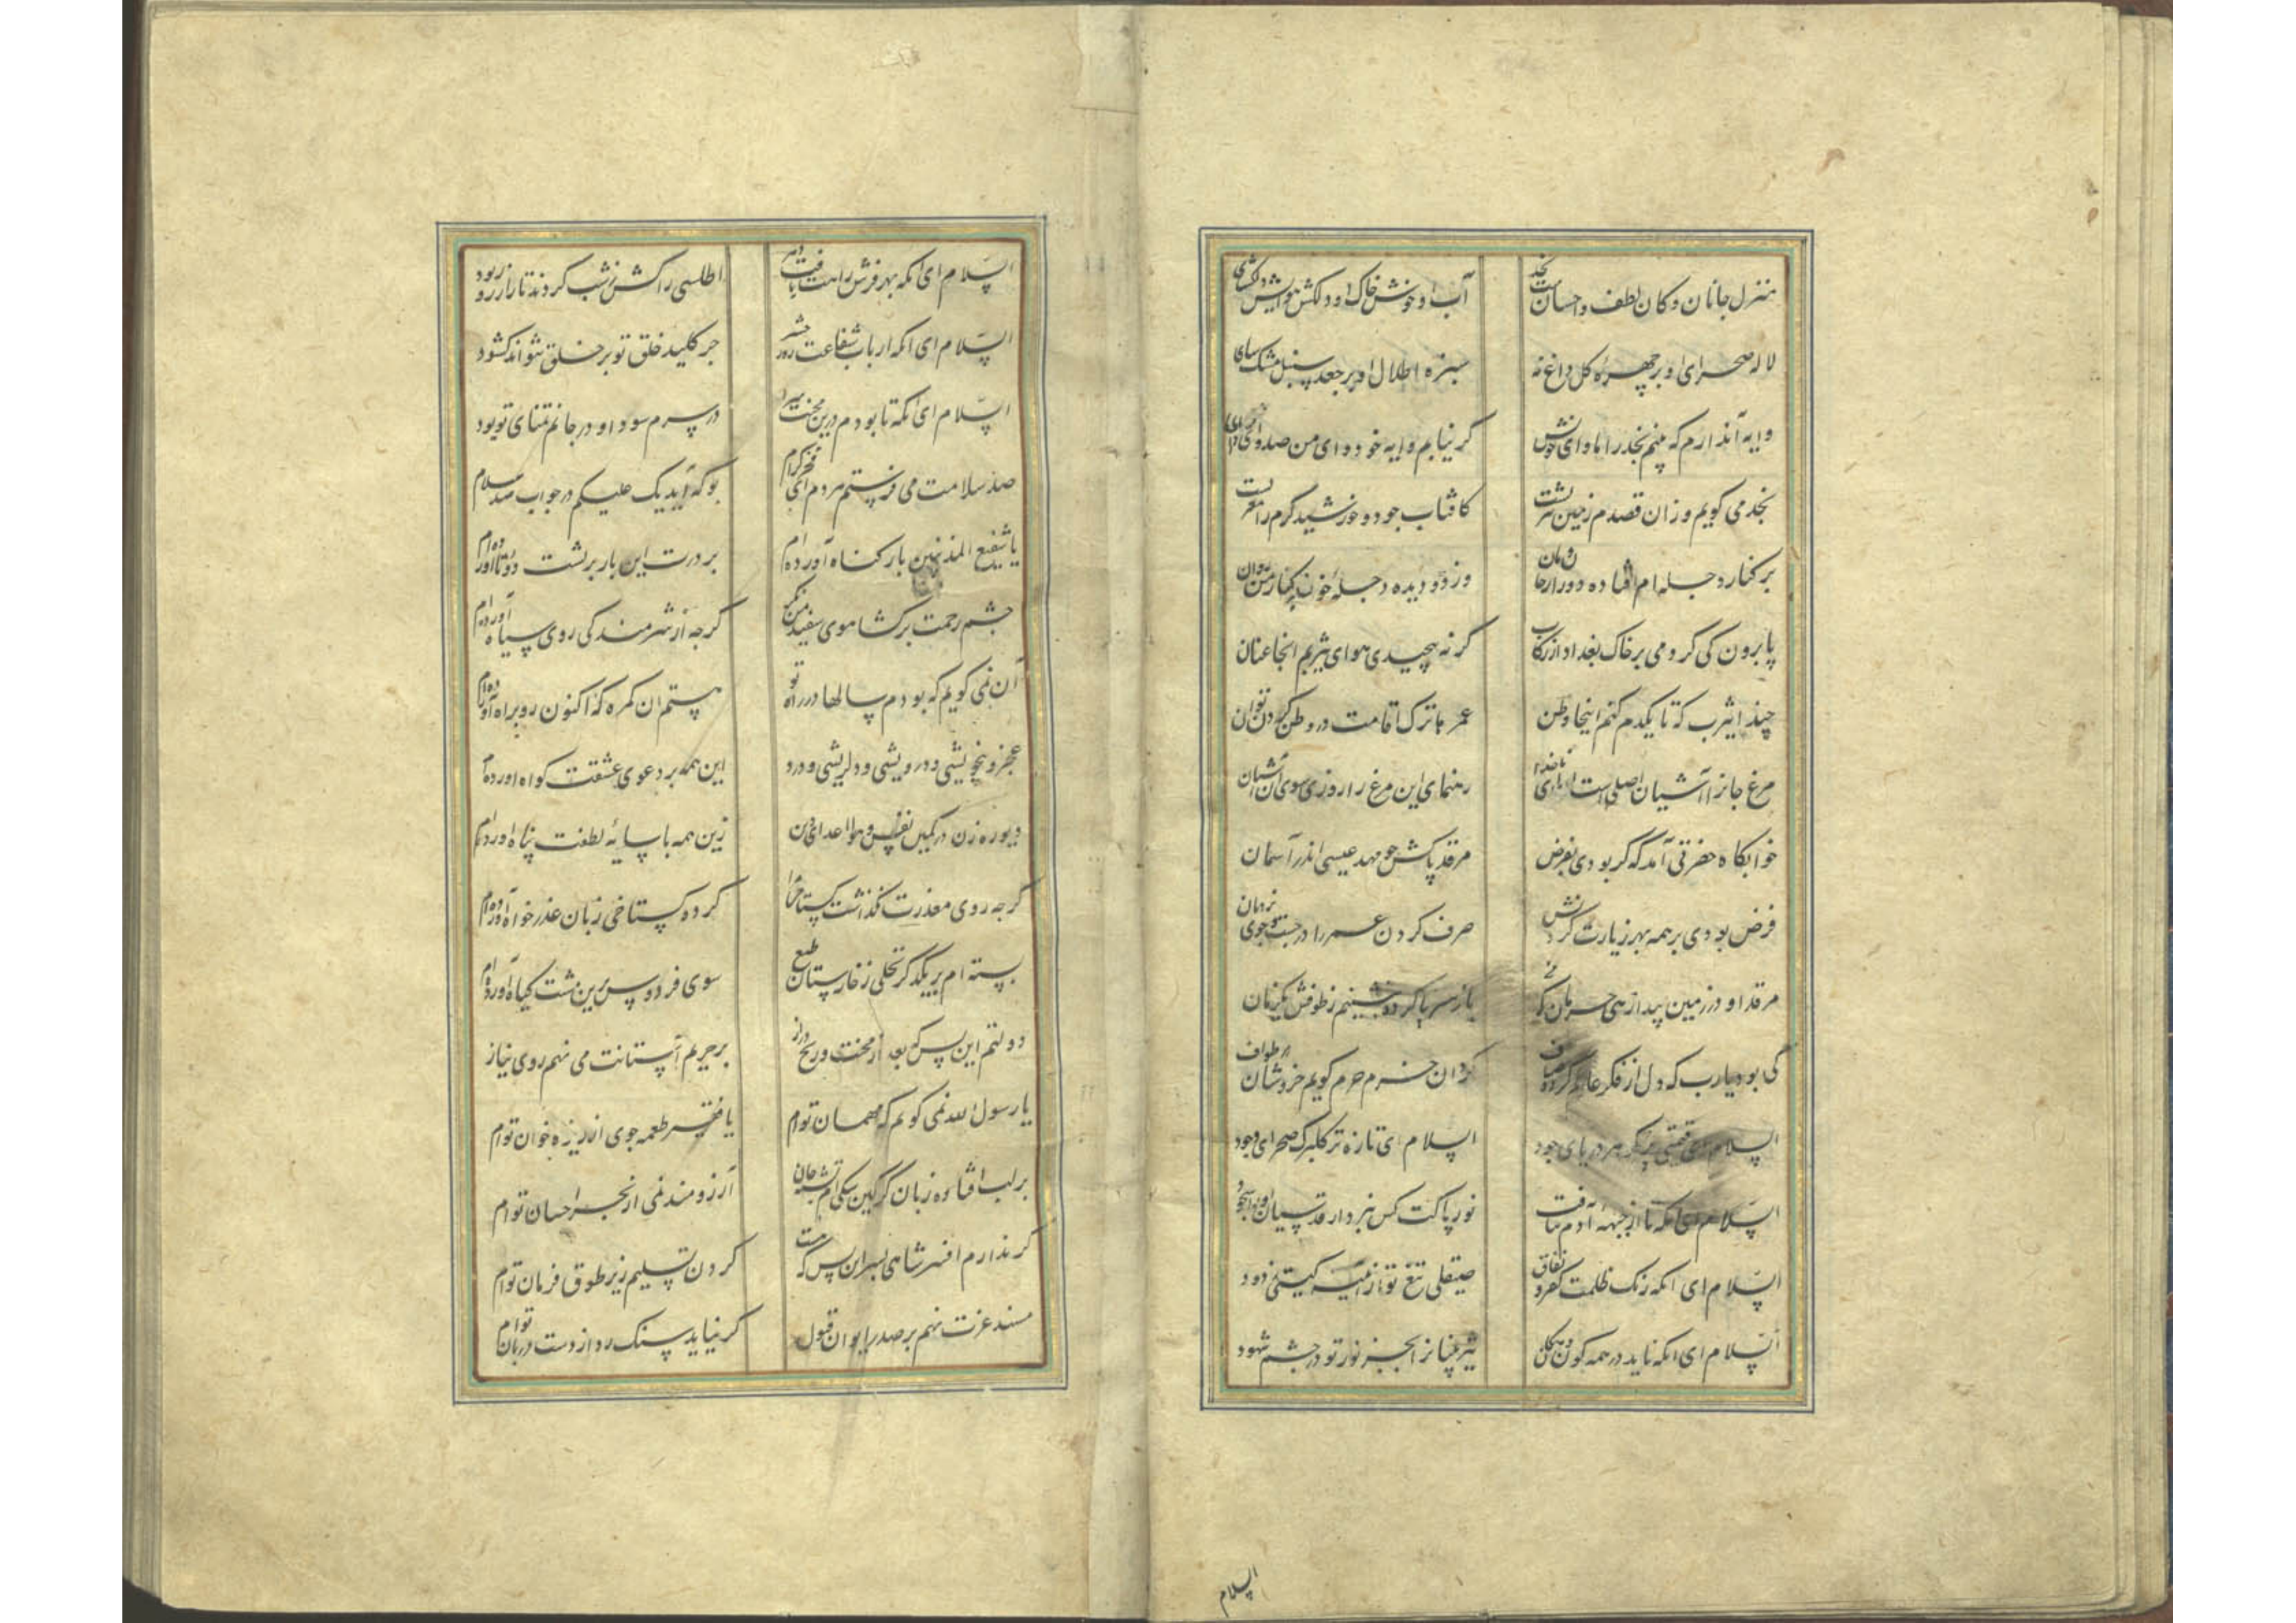 منزل جانان و کان لطف و احسانست نجد
آب او خوش خاک او دلکش هوایش دلگشای
لاله صحرای او بر چهره گل داغ نه
سبزه اطلال او بر جعد سنبل مشک سای
وایه آن دارم که بینم نجد را ماوای خویش
گر نیابم وایه خود وای من صد وای وای
نجد می کویم وزان قصدم زمین یثربست
کافتاب جود و خورشید کرم را مغربست
بر کنار دجله ام افتاده دور از خان و مان
وز دو دیده دجله خون بر کنار من روان
پا برون کی کردمی بر خاک بغداد از رکاب
گر نه پیچیدی هوای یثربم آنجا عنان
حبذا یثرب که تا یکدم کنم اینجا وطن
عمرها ترک اقامت در وطن کردن توان
مرغ جانرا آشیان اصلی است ای ناخدا
رهنمای این مرغ را روزی سوی آن آشیان
خوابگاه حضرتی آمد که گر بودی بفرض
مرقد پاکش چو مهد عیسی اندر آسمان
فرض بودی بر همه بهر زیارت کردنش
صرف کردن عمر را در جست و جوی نردبان
مرقد او در زمین پیدا زهی حرمان که من
باز سر پا کرده ننشینم ز طوفش یکزمان
کی بود یارب که دل از فکر عالم کرده صاف
گردان حرم کویم خروشان در طواف
السلام ای قیمتی تر گوهر دریای جود
السلام ای تازه تر گلبرگ صحرای وجود
السلام ای آنکه تا از جبهه آدم نتافت
نور پاکت کس نبرد از قدسیان او را سجود
السلام ای آنکه زنگ ظلمت کفر و نفاق
صیقلی تیغ تو از آیینه گیتی زدود
السلام ای آنکه ناید در همه کون و مکان
تیزبینانرا بجز نور تو در چشم شهود
السلام
السلام ای آنکه بهر فرش راهت بافت دهر
اطلسی را کش ز شب کردند تار از روز بود
السلام ای آنکه ابواب شفاعت روز حشر
جز کلید خلق تو بر خلق نتواند گشود
السلام ای آنکه تا بودم درین محنت سرا
در سرم سودا و در جانم تمنای تو بود
صد سلامت می فرستم هر دم ای فخر کرام
بو که آید یک علیکم در جواب صد سلام
یا شفیع المذنبین بار گناه آورده ام
بر درت این بار بر پشت دوتا آورده ام
چشم رحمت برگشا موی سفید من نگر
گرچه از شرمندگی روی سیاه آورده ام
آن نمی گویم که بودم سالها در راه تو
هستم آن گمره که اکنون رو براه آورده ام
عجز و بیخویشی و درویشی و دلریشی و درد
این همه بر دعوی عشقت گواه آورده ام
دیو رهزن در کمین نفس و هوا اعدای دین
زین همه با سایه لطفت پناه آورده ام
گرچه روی معذرت نگذاشت گستاخی مرا
کرده گستاخی زبان عذرخواه آورده ام
بسته ام بر یکدگر نخلی ز خارستان طبع
سوی فردوس برین مشت گیاه آورده ام
دولتم این بس که بعد از محنت و رنج دراز
بر حریم آستانت می نهم روی نیاز
یا رسول الله نمی گویم که مهمان توام
یا فقیر طعمه جوی از ریزه خوان توام
بر لب افتاده زبان گرگین سگی ام تشنه جان
آرزومند نمی از بحر احسان توام
گر ندارم افسر شاهی بسر این بس که هست
گردن تسلیم زیر طوق فرمان توام
مسند عزت نهم بر صدر ایوان قبول
گر نیاید سنگ رد از دست دربان توام